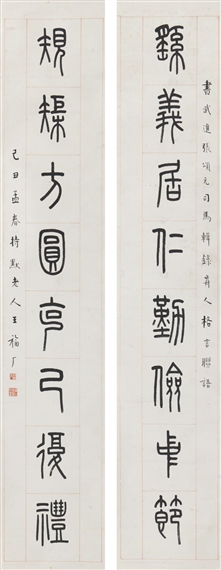 書武進張頌元司馬輯錄歬人格言聯語
繇義居仁勤儉中節
規榘方圓克己復禮
己丑孟春持默老人王福厂